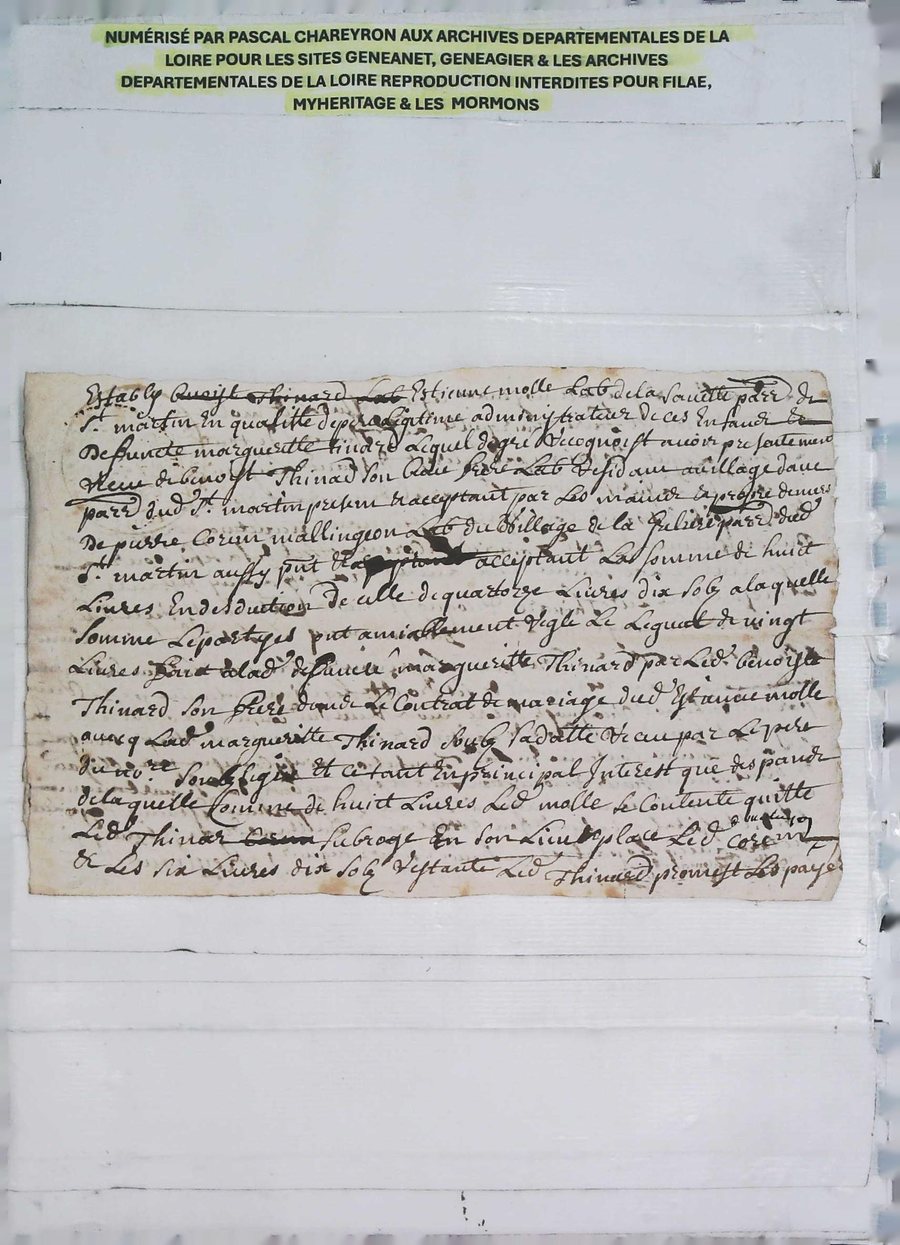 NUMÉRISÉ PAR PASCAL CHAREYRON AUX ARCHIVES DEPARTEMENTALES DE LA
LOIRE POUR LES SITES GENEANET, GENEAGIER & LES ARCHIVES
DEPARTEMENTALES DE LA LOIRE REPRODUCTION INTERDITES POUR FILAE,
MYHERITAGE & LES MORMONS
Estably benoist thinard Lab Estienne molle Lab de la Sauette parr. de
St. martin En qualitté de pere Legitime administrateur de ces Enfandz de
Deffuncte margueritte tinard Lequel de gré Recognoist auoir presentement
Receu de benoyst Thinard Son beau frere Lab Residant au village
parr dud St. martin present & acceptant par Les mains & propre deniers
De pierre Corein mallingeon Lab du Village de la parr. dud
St. martin aussy pnt & acceptant acceptant La Somme de huict
Liures En desduction de celle de quatorze Liures dix Solz a laquelle
Somme Les partyes ont amiallement Regle Le Leguat de vingt
Liures faict a lad. deffuncte marguerite Thinard par Led. benoyst
Thinard Son frere dans Le Contrat de mariage dud Estienne molle
auecq Lad marguerite Thinard Soubz Sa datte Receu par Le pere
du nore. Soubsigné Et ce tant En principal Interest que despandz
de laquelle Somme de huict Liures Led molle Se Contente quitte
Led Thinar Corein Subroge En Son Lieu & place Led Corein
& Les Six Liures dix Solz Restante Led Thinard promest Les payer